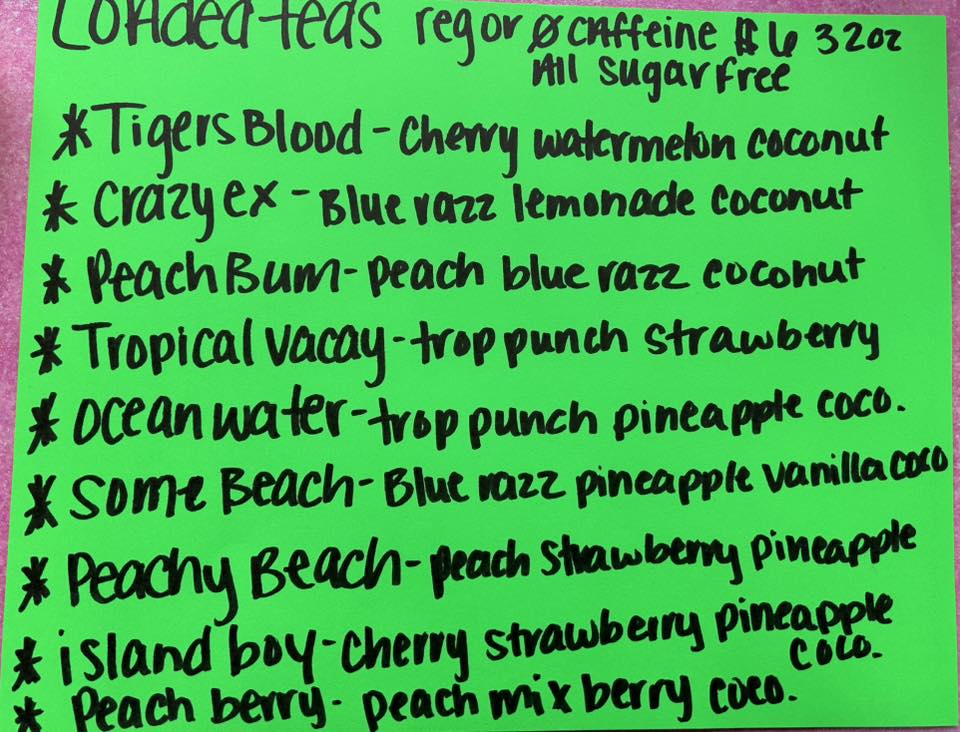 Loaded teas reg or Ø caffeine $6 32oz
All sugar free
* Tigers Blood - cherry watermelon coconut
* crazy ex - Blue razz lemonade coconut
* Peach Bum - peach blue razz coconut
* Tropical vacay - trop punch strawberry
* ocean water - trop punch pineapple coco.
* Some Beach - Blue razz pineapple vanilla coco
* Peachy Beach - peach strawberry pineapple
* island boy - cherry strawberry pineapple
coco.
* Peach berry - peach mix berry coco.